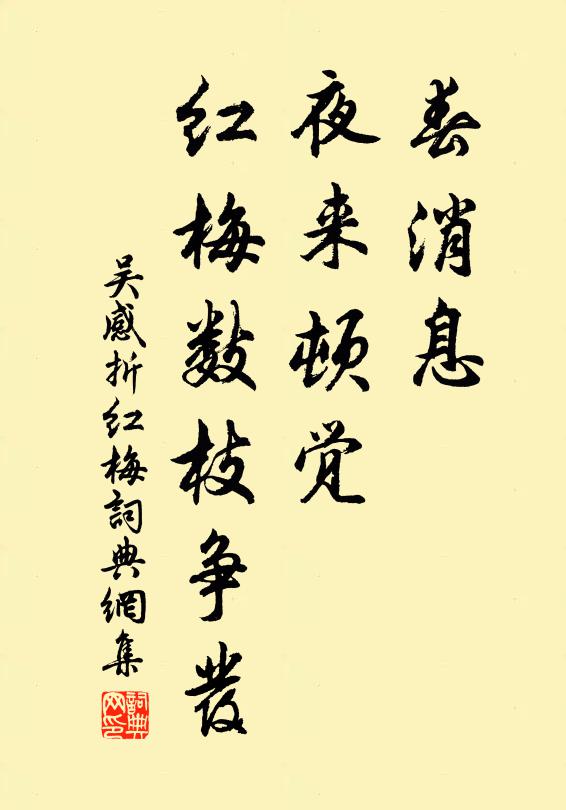 春消息
夜来顿觉
红梅数枝争发
吴感折红梅词典网集
词典网印